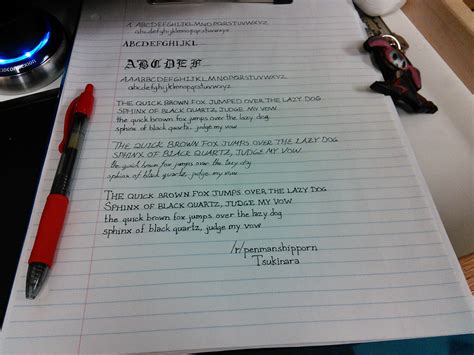 AABCDEFGHIJKLMNOPQRSTUVWXYZ
abcdefghijklmnopqrstuvwxyz
ABCDEFGHIJKL
ABCDEF
AAABCDEFGHIJKLMNOPQRSTUVWXYZ
abcdefghijklmnopqrstuvwxyz
THE QUICK BROWN FOX JUMPED OVER THE LAZY DOG
SPHINX OF BLACK QUARTZ, JUDGE MY VOW.
the quick brown fox jumps over the lazy dog
sphinx of black quartz, judge my vow.
THE QUICK BROWN FOX JUMPS OVER THE LAZY DOG
SPHINX OF BLACK QUARTZ, JUDGE MY VOW.
the quick brown fox jumps over the lazy dog
sphinx of black quartz, judge my vow.
THE QUICK BROWN FOX JUMPS OVER THE LAZY DOG
SPHINX OF BLACK QUARTZ, JUDGE MY VOW.
the quick brown fox jumps over the lazy dog
sphinx of black quartz, judge my vow
/r/penmanshipporn
Tsukinara